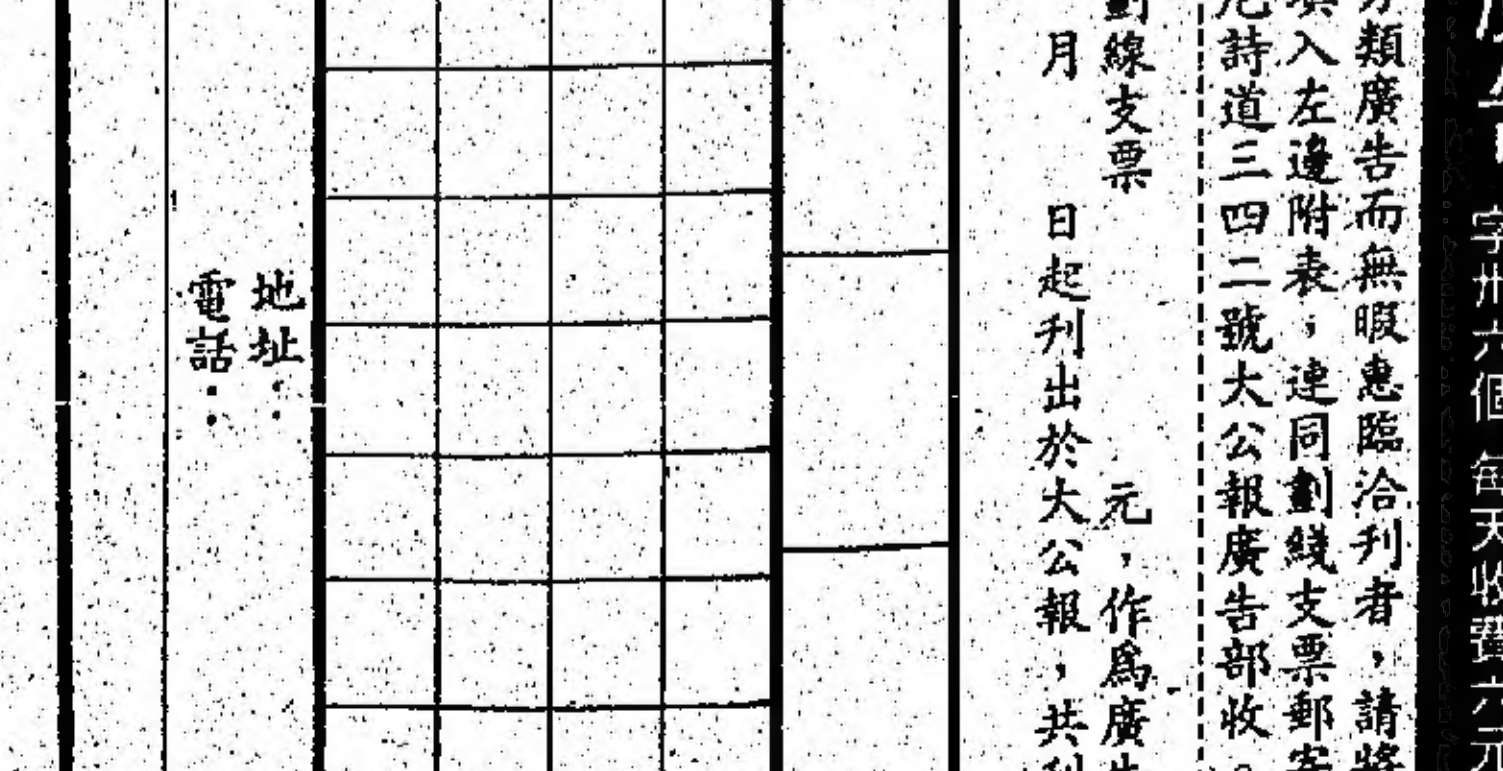 字卅六個 每天收費六元
分類廣告而無暇惠臨洽刋者，請將
填入左邊附表，連同劃綫支票郵寄
尼詩道三四二號太公報廣告部收。
劃線支票　元，作爲廣告
月　日起刋出於大公報，共刋
地址：
電話：